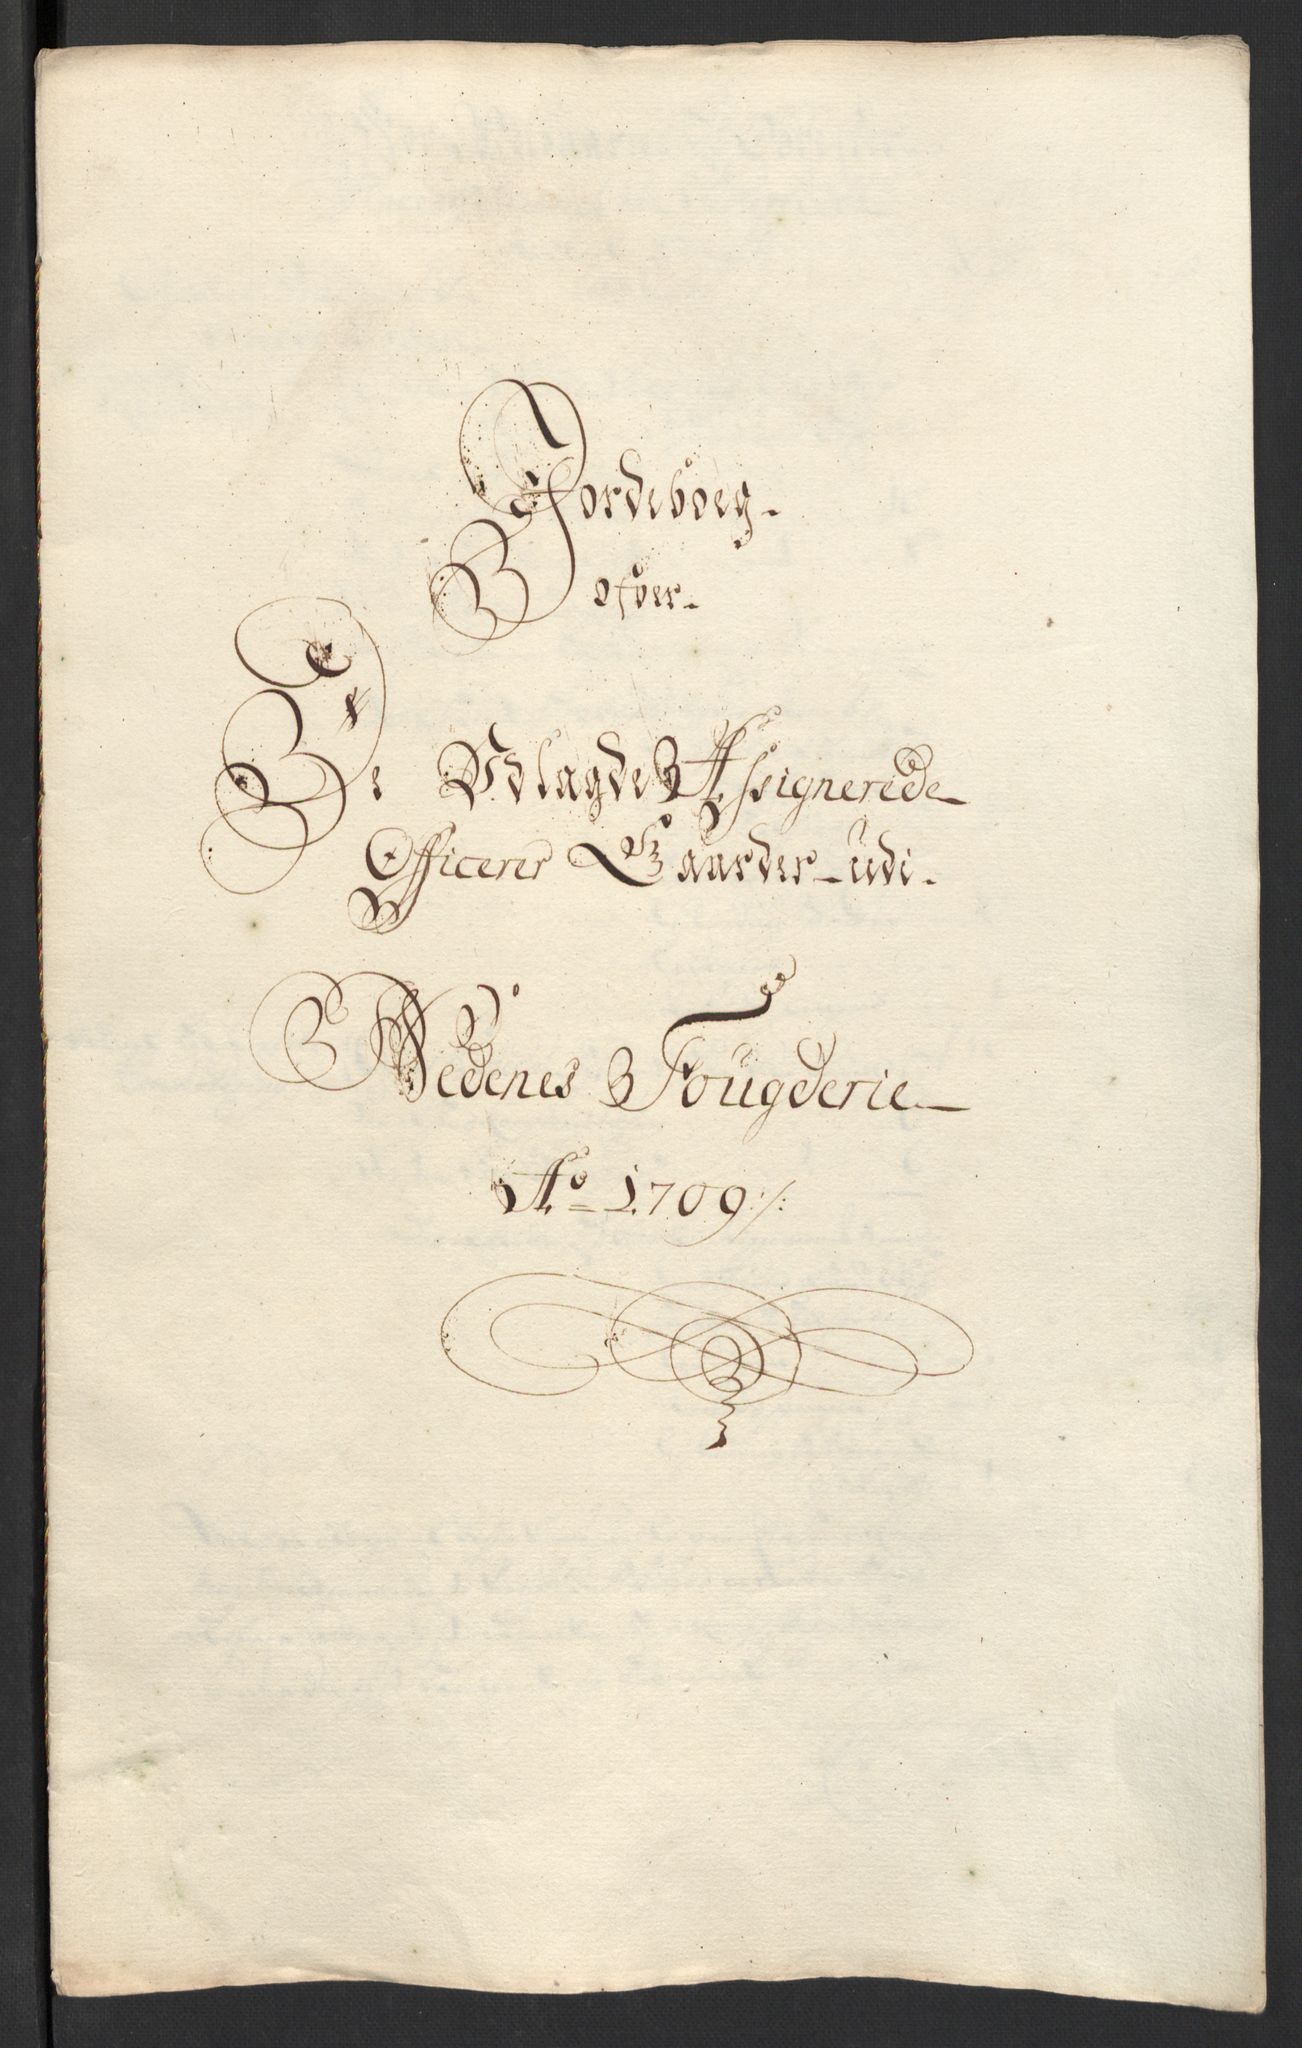 Jordeboeg.
ofver.
De Udlagde Assignerede
Officerer Gaarder udi.
Nedenes Fougderie
Ao 1709 ./: